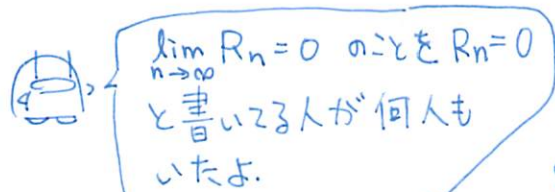 lim n→∞ Rn=0 のことを Rn=0
と書いてる人が何人も
いたよ.